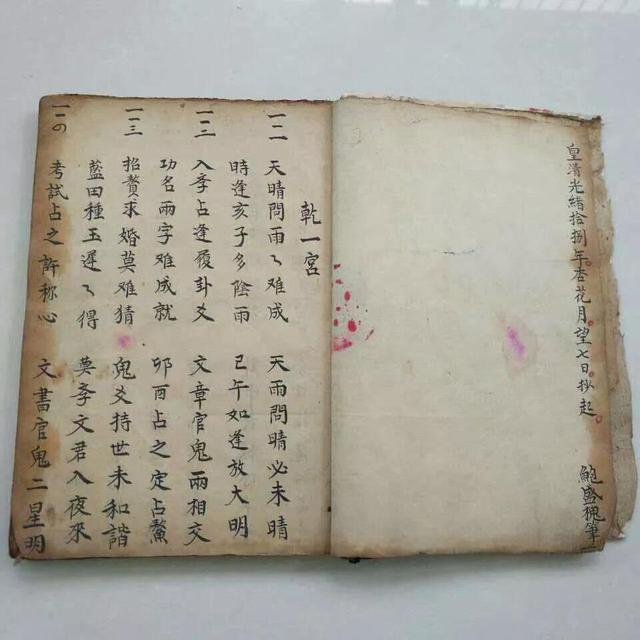 皇清光緒拾捌年杏花月望七日抄起
鮑盛槐筆
乾一宮
天晴問雨々难成 天雨問晴必未晴
時逢亥子多陰雨 已午如逢放大明
入斈占逢履卦爻 文章官鬼兩相交
功名兩字难成就 卯酉占之定占鰲
一三 招贅求婚莫难猜 鬼爻持世未和諧
藍田種玉遲々得 莫斈文君入夜來
考試占之許称心 文書官鬼二星明